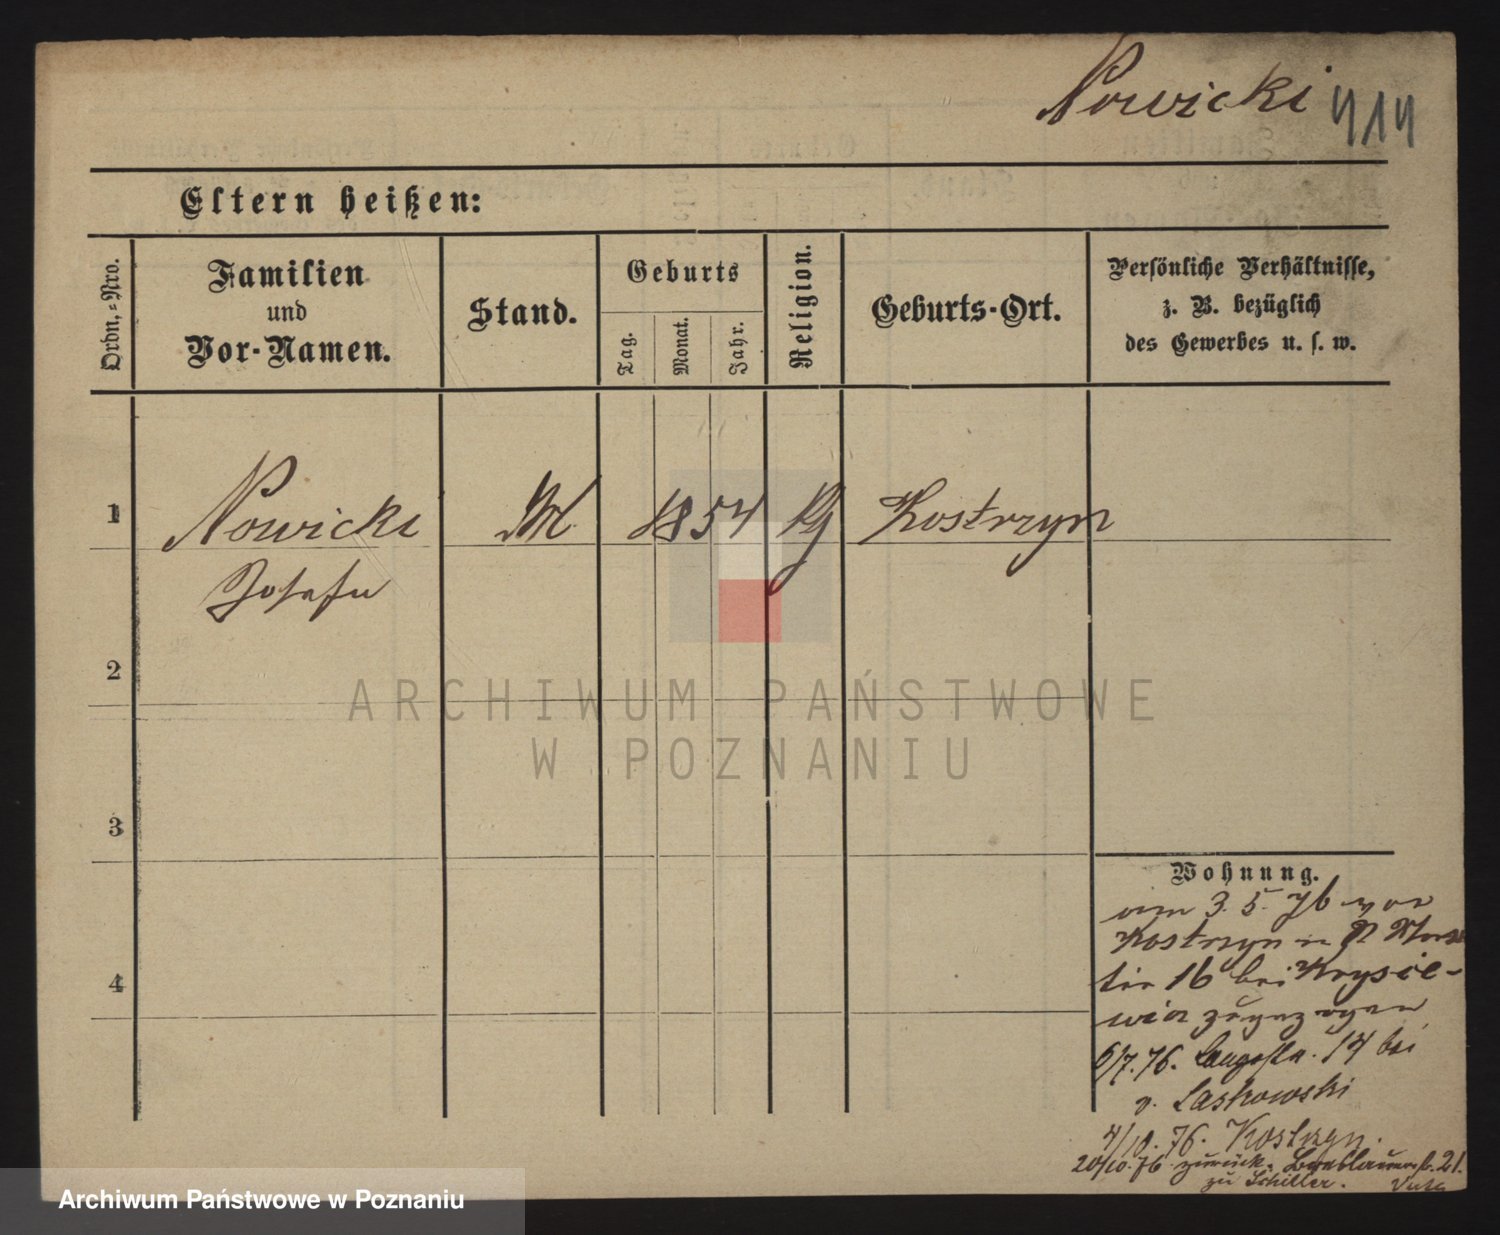 Nowicki 414
Eltern heißen:
Ordn.=Nro.
Familien
und
Vor-Namen.
Stand.
Geburts
Tag.
Monat.
Jahr.
Religion.
Geburts-Ort.
Persönliche Verhältnisse,
z. B. bezüglich
des Gewerbes u. s. w.
1 Nowicki M 1854 Kostrzyn
Josefa
2
3
4
ARCHIWUM PAŃSTWOWE
W POZNANIU
Wohnung.
am 3. 5. 76 von
Kostrzyn in
16 bei Krysie-
wicz zugezogen
6/7. 76. Langestr. 14 bei
v. Laskowski
4/10. 76. Kostrzyn.
20/10. 76 zurück. Breslauerst. 21.
zu Schiller.
Archiwum Państwowe w Poznaniu